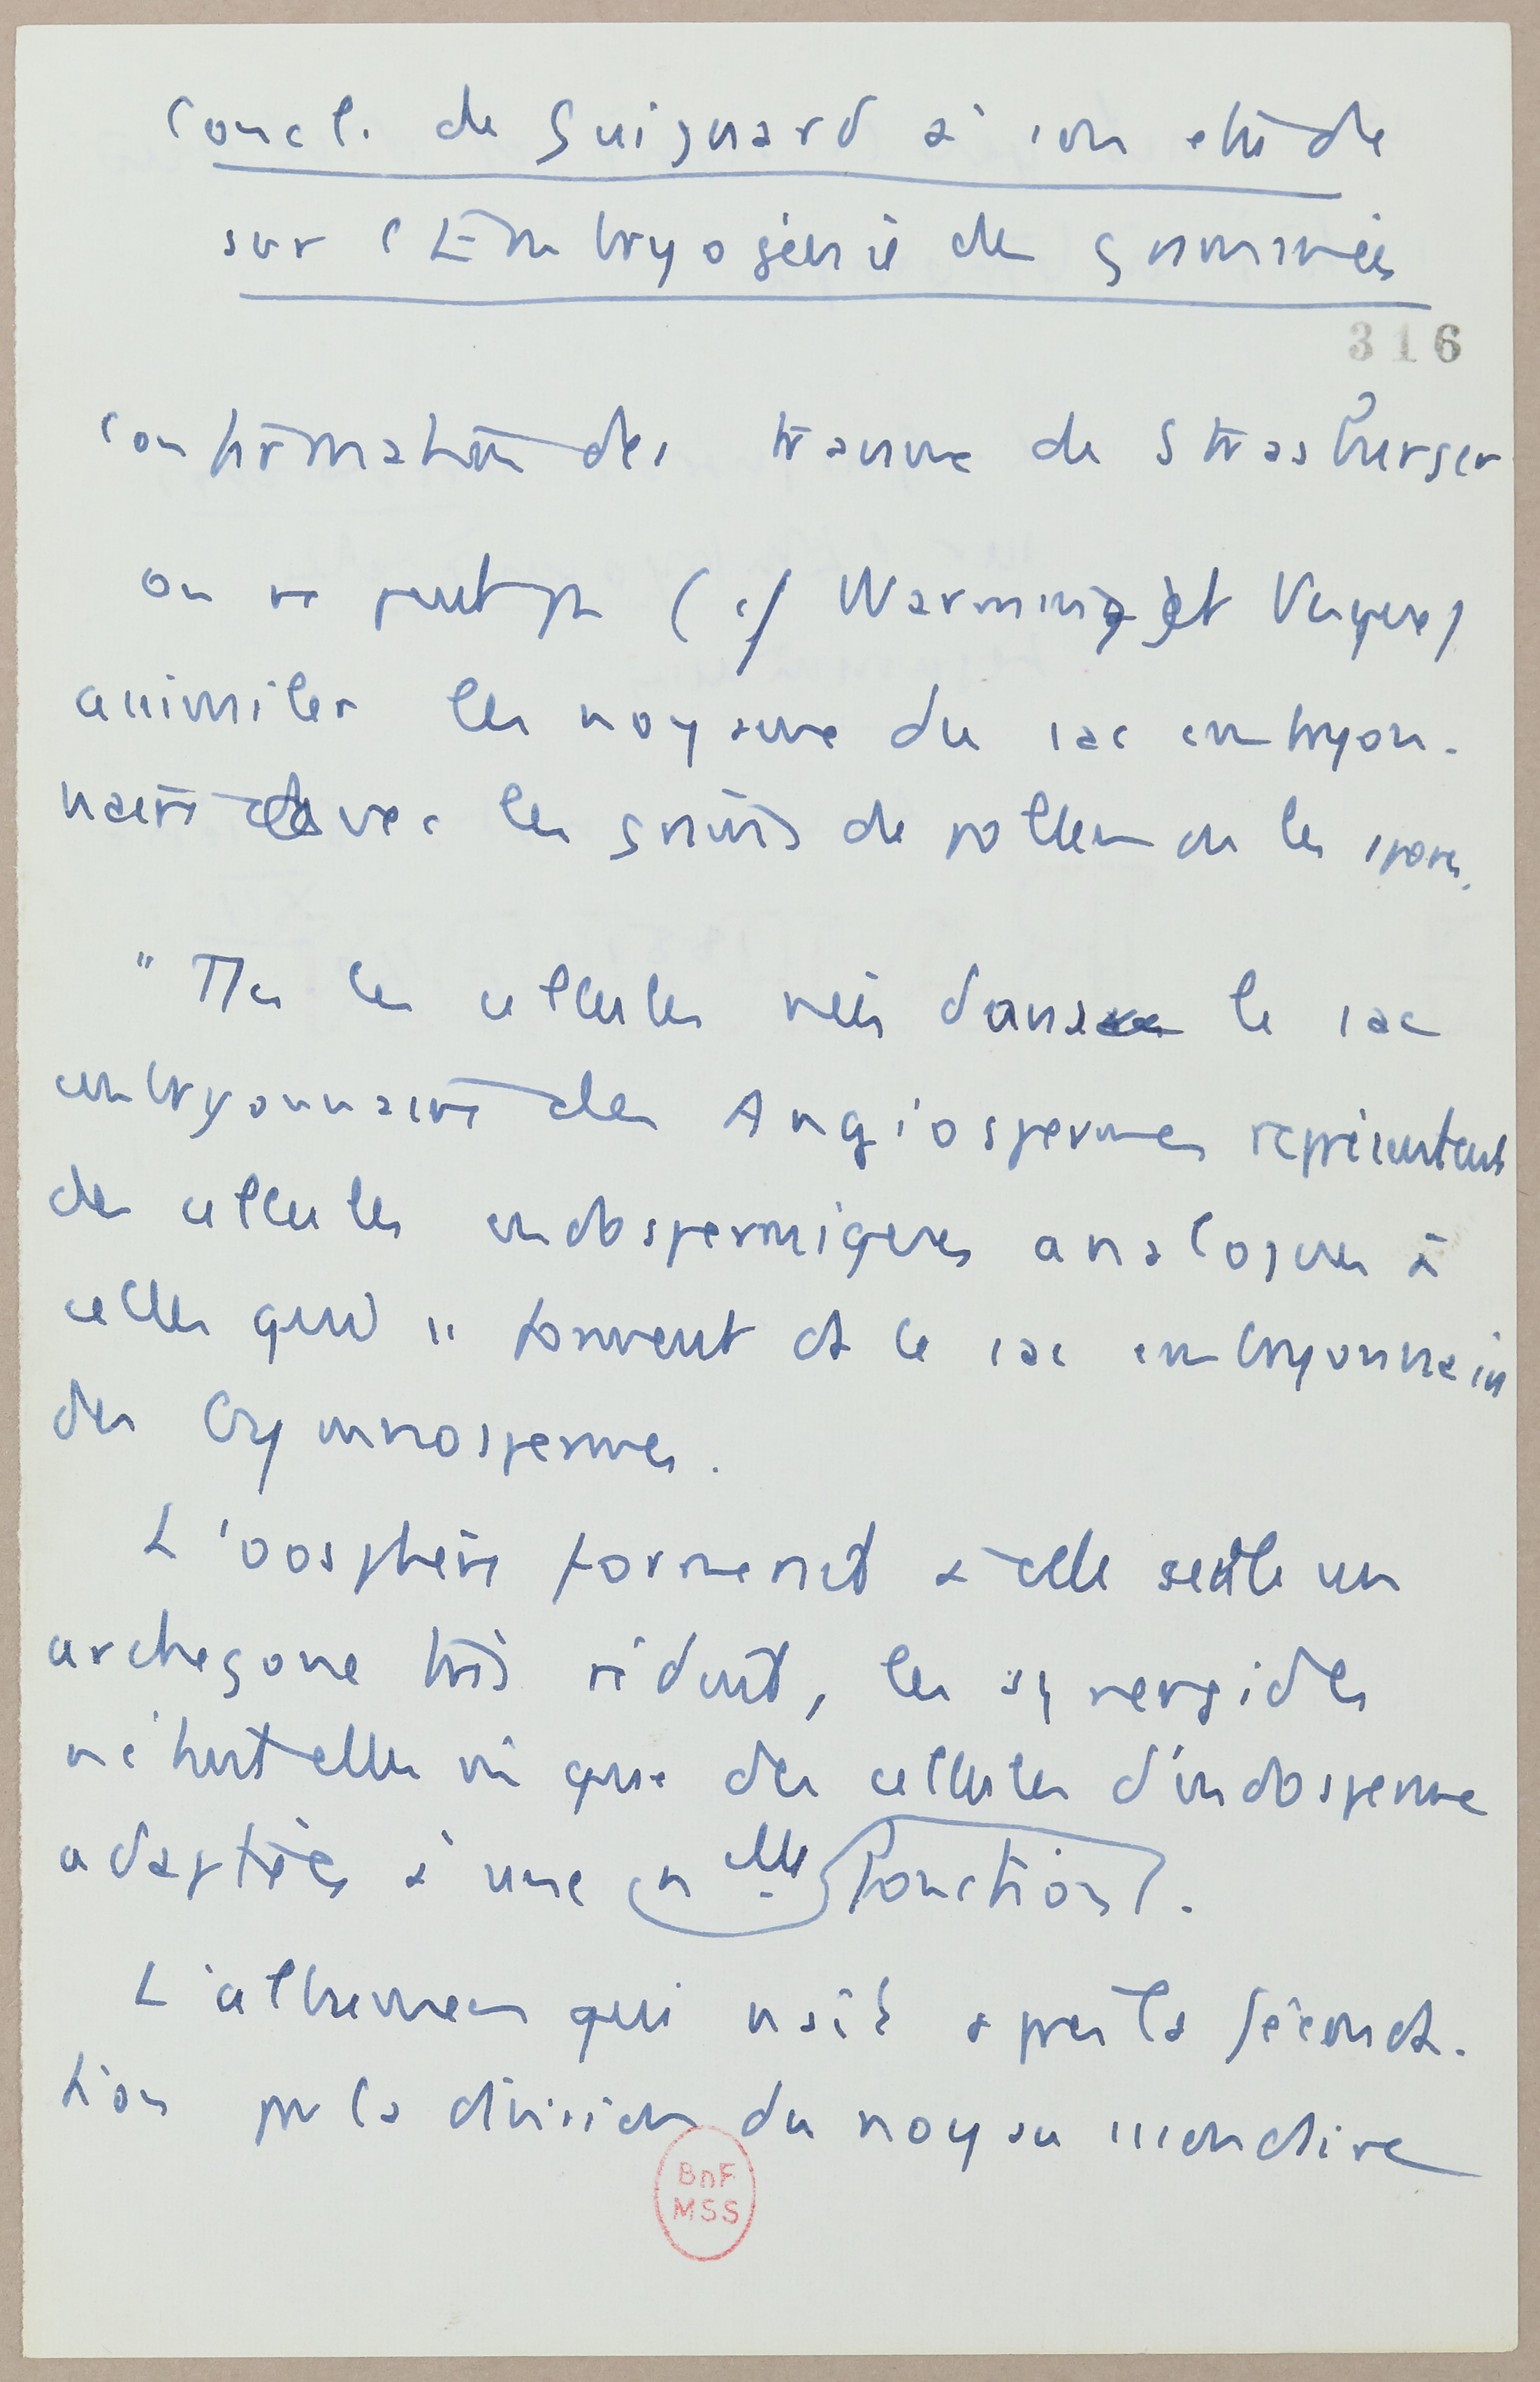 Concl. de Guignard à son étude
sur l'Embryogénie des graminées
316
Confirmation des travaux de Strasburger
On ne peut pas (cf Warming et Vesque)
assimiler les noyaux du sac embryon-
naire avec les grains de pollen ou les spores.
"Tts les cellules nées dans le sac
embryonnaire des Angiospermes représentent
des cellules endospermiques analogues à
celles qui se forment ds le sac embryonnaire
des Gymnospermes.
L'oosphère formerait à elle seule un
archégone très réduit, les synergides
n'étant elles mê que des cellules d'endosperme
adaptées à une nlle fonction.
L'albumen qui naît après la féconda-
tion par la division du noyau secondaire
BnF
MSS